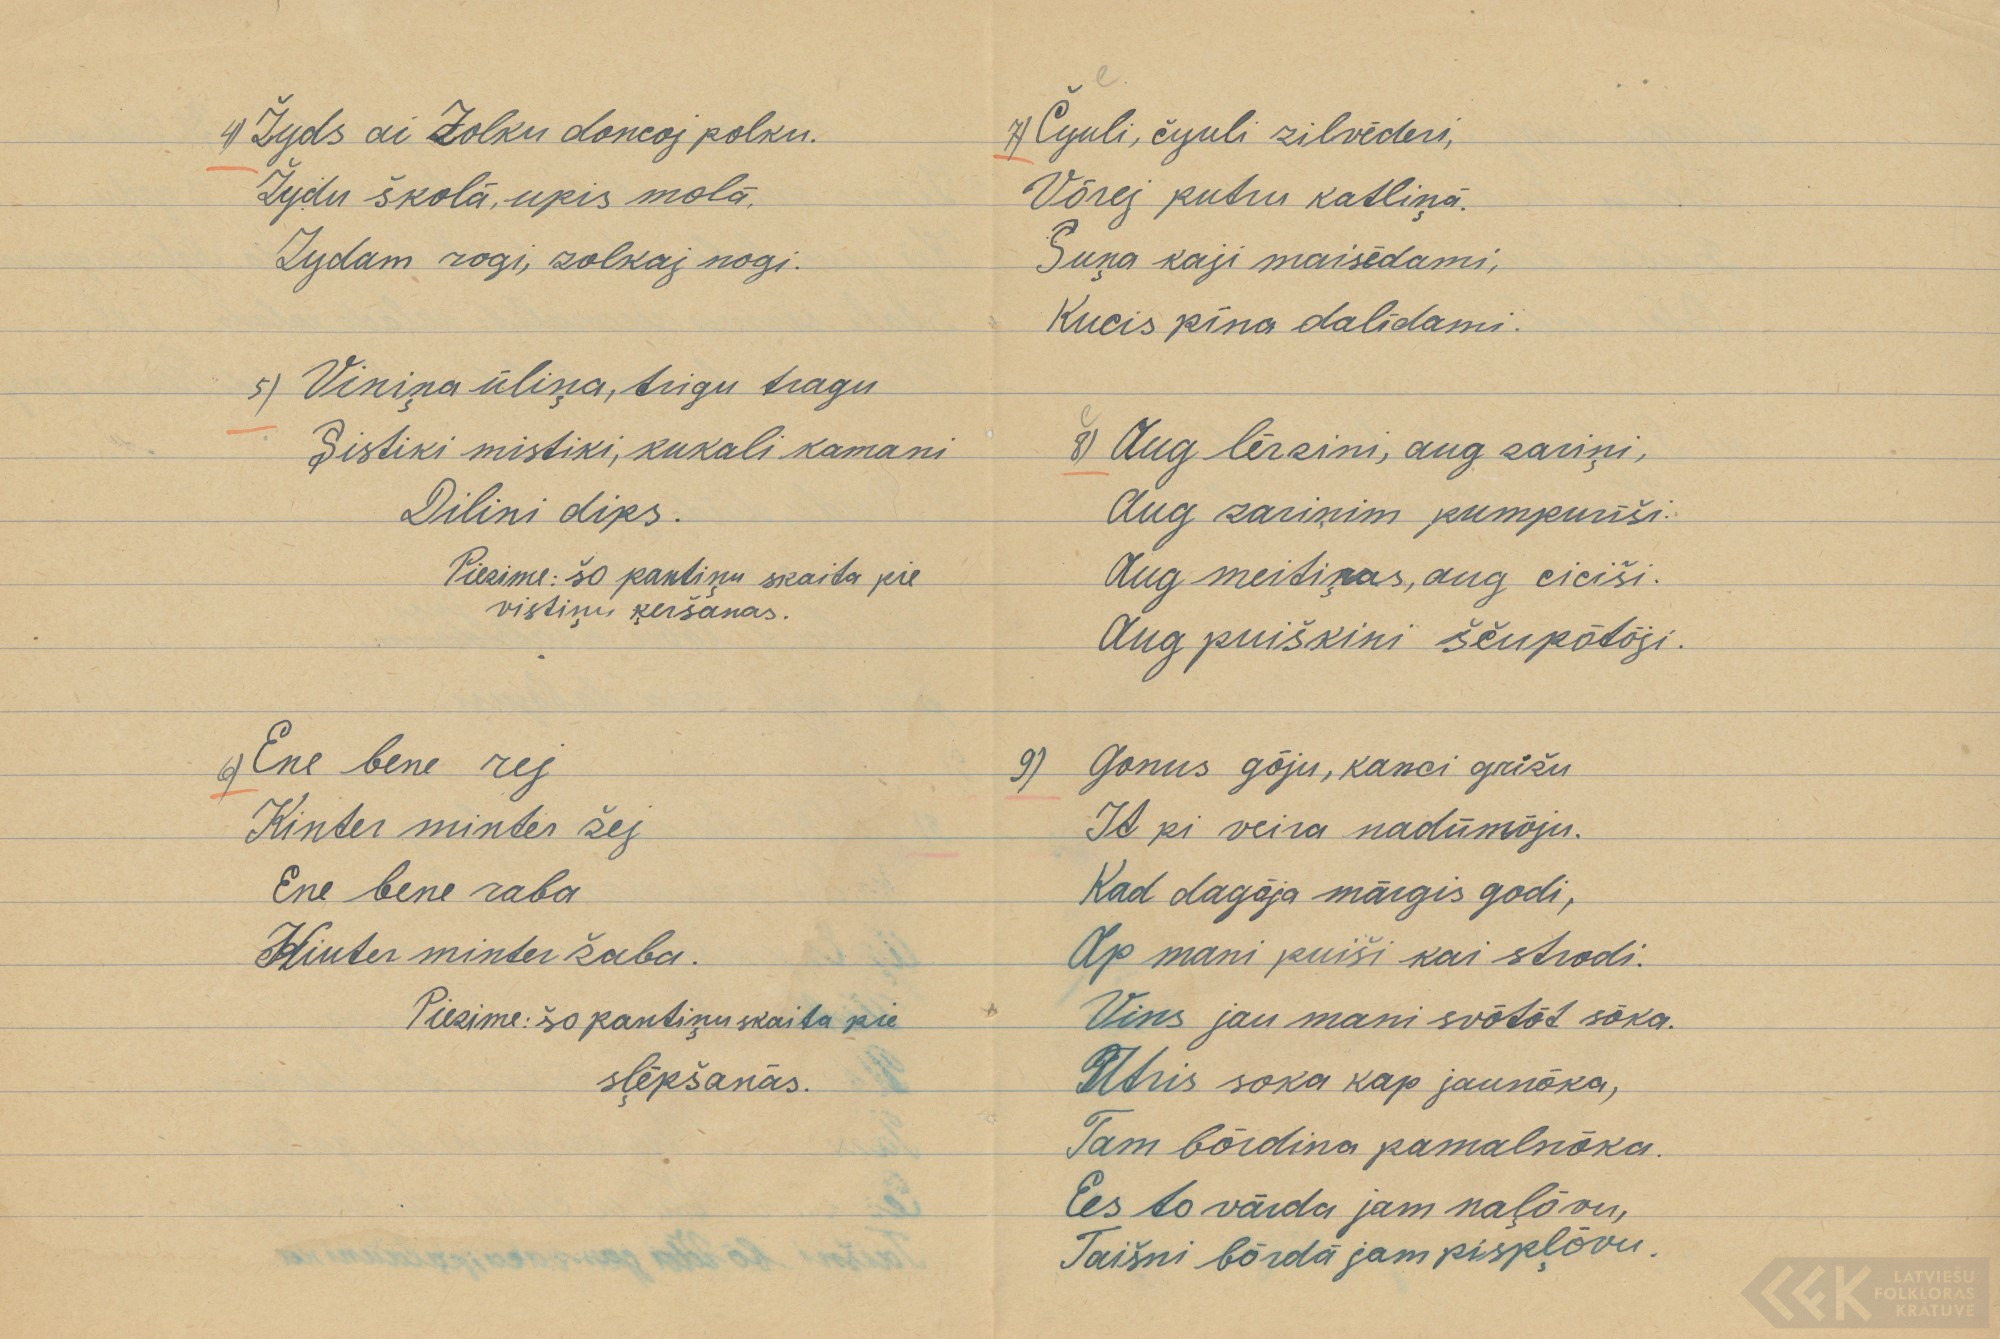 4) Žyds ai Zolku doncoj polku.
Žydu školā, upis molā,
Zydam rogi, zolkaj nogi.
5) Viniņa ūliņa, trigu tragu
Šistiki mistiki, kukali kamani
Dilini dips.
Piezime: šo pantiņu skaita pie
vistiņu ķeršanas.
6) Ene bene rej
Kinter minter žej
Ene bene raba
Kinter minter žaba.
Piezime: šo pantiņu skaita pie
slēpšanās.
7) Čyuli, čyuli zilvēderi,
Vōrej putru katliņā.
Suņa kaji maisēdami,
Kucis pīna dalīdami.
8) Aug lērzini, aug zariņi,
Aug zariņim pumpurīši.
Aug meitiņas, aug ciciši.
Aug puiškini ščupōtōji.
9) Gonus gōju, kanci grīžu
It pi veira nadūmōju.
Kad dagōja mārgis godi,
Ap mani puiši kai strodi.
Vins jau mani svōtōt sōka.
Utris soka kap jaunōka,
Tam bōrdina pamalnōka.
Ees to vārda jam naļōvu,
Taišni bōrdā jam pispļōvu.
LATVIEŠU
FOLKLORAS
KRĀTUVE